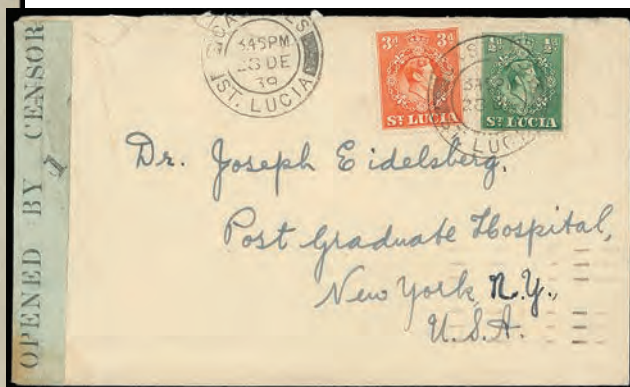 OPENED BY CENSOR
1
CASTRIES
3 45 PM
23 DE
39
ST. LUCIA
3d 3d
ST LUCIA
½d ½d
ST LUCIA
ST. LUCIA
Dr. Joseph Eidelsberg,
Post Graduate Hospital,
New York, N.Y.,
U.S.A.